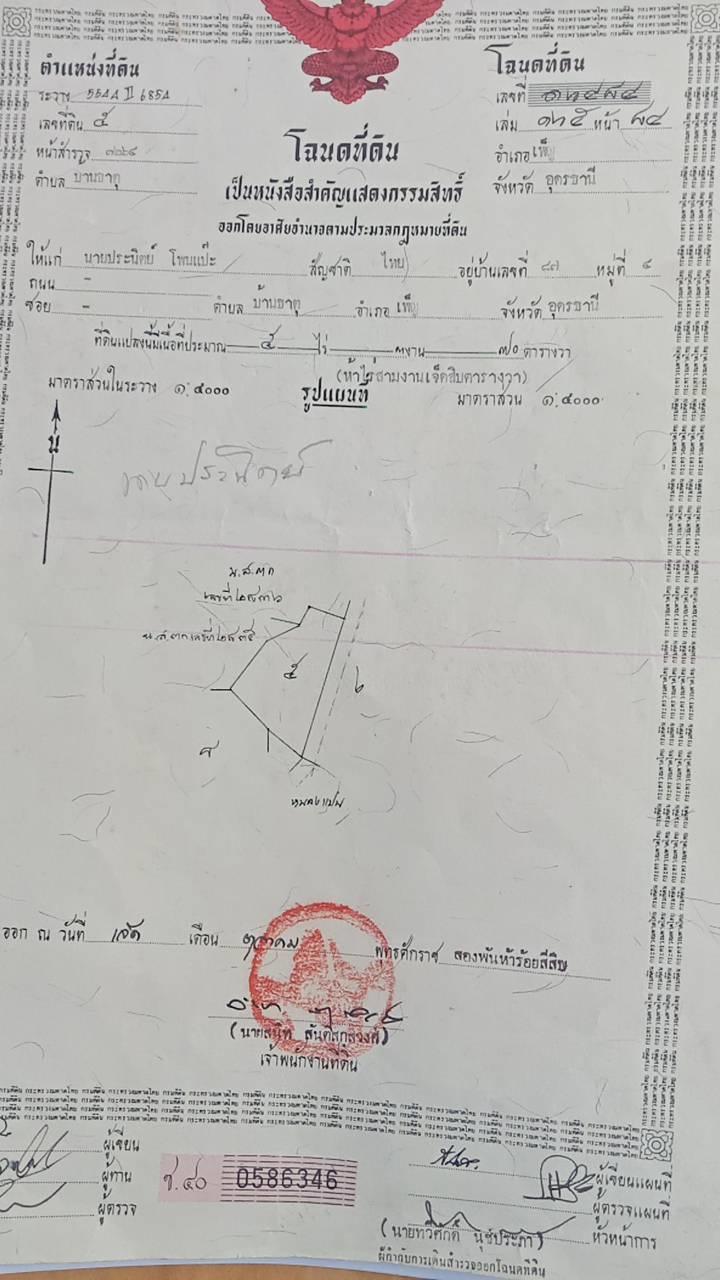 ตำแหน่งที่ดิน
ระวาง 5544 II 6854
เลขที่ดิน ๕
หน้าสำรวจ
ตำบล บ้านธาตุ
โฉนดที่ดิน
เลขที่ ๑๒๔๘๔
เล่ม ๑๒๕ หน้า ๘๔
อำเภอ เพ็ญ
จังหวัด อุดรธานี
โฉนดที่ดิน
เป็นหนังสือสำคัญแสดงกรรมสิทธิ์
ออกโดยอาศัยอำนาจตามประมวลกฎหมายที่ดิน
ให้แก่ นายประนิตย์ โพนแป๊ะ สัญชาติ ไทย อยู่บ้านเลขที่ ๘๗ หมู่ที่ ๕
ถนน - 
ซอย - ตำบล บ้านธาตุ อำเภอ เพ็ญ จังหวัด อุดรธานี
ที่ดินแปลงนี้มีเนื้อที่ประมาณ ๕ ไร่ ๓ งาน ๗๐ ตารางวา
(ห้าไร่สามงานเจ็ดสิบตารางวา)
มาตราส่วนในระวาง ๑:๔๐๐๐ รูปแผนที่ มาตราส่วน ๑:๔๐๐๐
น
นายประนิตย์
น.ส.๓ก
เลขที่
น.ส.๓ก เลขที่
๕
๖
๔
ออก ณ วันที่ เจ็ด เดือน ตุลาคม พุทธศักราช สองพันห้าร้อยสี่สิบ
เจ้าพนักงานที่ดิน
ผู้เขียน
ผู้ทาน
ผู้ตรวจ
ช.๔๐ 0586346
ผู้เขียนแผนที่
ผู้ตรวจแผนที่
(นายทวีศักดิ์ นุชประภา) หัวหน้าการ
ผู้กำกับการเดินสำรวจออกโฉนดที่ดิน